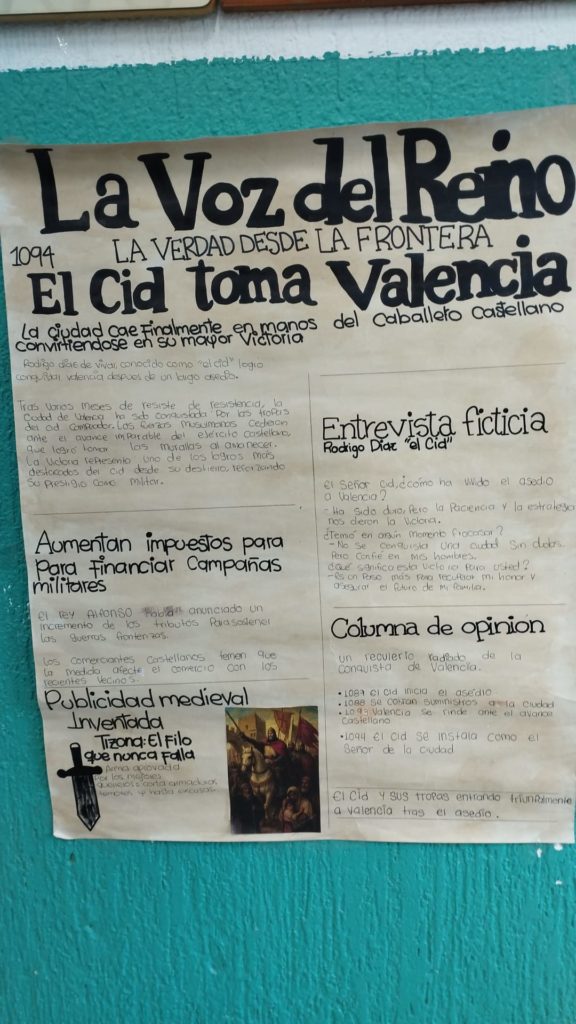 La Voz del Reino
1094 LA VERDAD DESDE LA FRONTERA
El Cid toma Valencia
La ciudad cae finalmente en manos del Caballero Castellano
convirtiendose en su mayor victoria
Rodrigo diaz de vivar, conocido como "el cid" logro
conquistar valencia despues de un largo asedio.
Tras varios meses de resiste de resistencia, la
Ciudad de Valencia ha sido conquistada por las tropas
del cid campeador. Las fuerzas musulmanas cedieron
ante el avance imparable del ejercito castellano,
que logro tomar las murallas al amanecer.
La victoria represento uno de los logros más
destacados del cid desde su destierro, reforzando
su prestigio como militar.
Aumentan impuestos para
para financiar Campañas
militares
El rey Alfonso anunciado un
incremento de los tributos para sostener
las guerras fronterizas.
Los comerciantes castellanos temen que
la medida afecte el comercio con los
recientes vecinos.
Publicidad medieval
Inventada
Tizona: El Filo
que nunca falla
Arma aprovada
por los mejores
guerreros corta armaduras
temores y hasta excusas.
Entrevista ficticia
Rodrigo Diaz "el Cid"
El Señor cid, ¿cómo ha vivido el asedio
a Valencia?
- Ha sido duro, pero la paciencia y la estrategia
nos dieron la victoria.
¿Temió en algún momento fracasar?
- No se conquista una ciudad sin dudas,
Pero confie en mis hombres.
¿Qué significa esta victoria para usted?
- Es un paso más para recuperar mi honor y
asegurar el futuro de mi familia.
Columna de opinion
un recuerto de la
conquista de Valencia.
• 1087 El cid inicia el asedio
• 1088 se cortan suministros a la ciudad
• 1093 Valencia se rinde ante el avance
castellano
• 1094 El Cid se instala como el
Señor de la ciudad
El Cid y sus tropas entrando triunfalmente
a valencia tras el asedio.